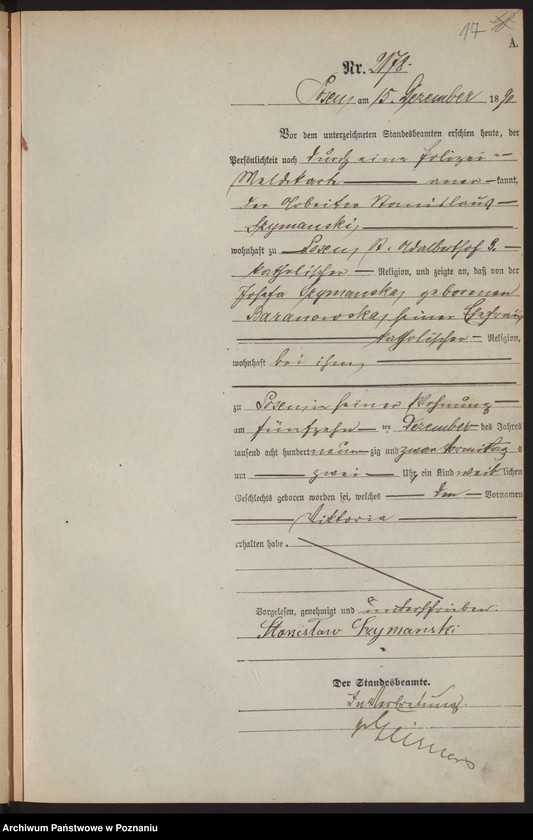 17
A.
Nr. 2178.
Posen, am 15. Dezember 1890
Vor dem unterzeichneten Standesbeamten erschien heute, der
Persönlichkeit nach durch eine Polizei-
Meldekarte anerkannt,
der Arbeiter Stanislaus
Szymanski,
wohnhaft zu Posen, St. Adalberthof 3.
katholischer Religion, und zeigte an, daß von der
Josefa Szymanska, geborenen
Baranowska, seiner Ehefrau
katholischer Religion,
wohnhaft bei ihm,
zu Posen in seiner Wohnung
am fünfzehn ten Dezember des Jahres
tausend acht hundert neunzig und zwar Vormittags
um zwei Uhr ein Kind weiblichen
Geschlechts geboren worden sei, welches den Vornamen
Viktoria
erhalten habe.
Vorgelesen, genehmigt und unterschrieben.
Stanisław Szymanski
Der Standesbeamte.
In Vertretung.
Archiwum Państwowe w Poznaniu